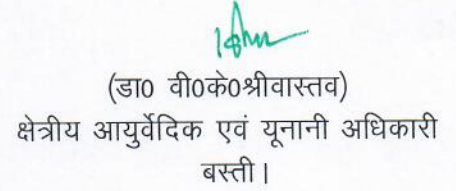 (डा0 वी0के0श्रीवास्तव)
क्षेत्रीय आयुर्वेदिक एवं यूनानी अधिकारी
बस्ती।